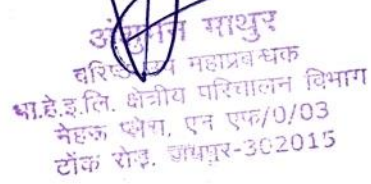 माथुर
महाप्रबन्धक
भा.हे.इ.लि. क्षेत्रीय परिचालन विभाग
नेहरू प्लेस, एन एफ/0/03
टोंक रोड, जयपुर-302015